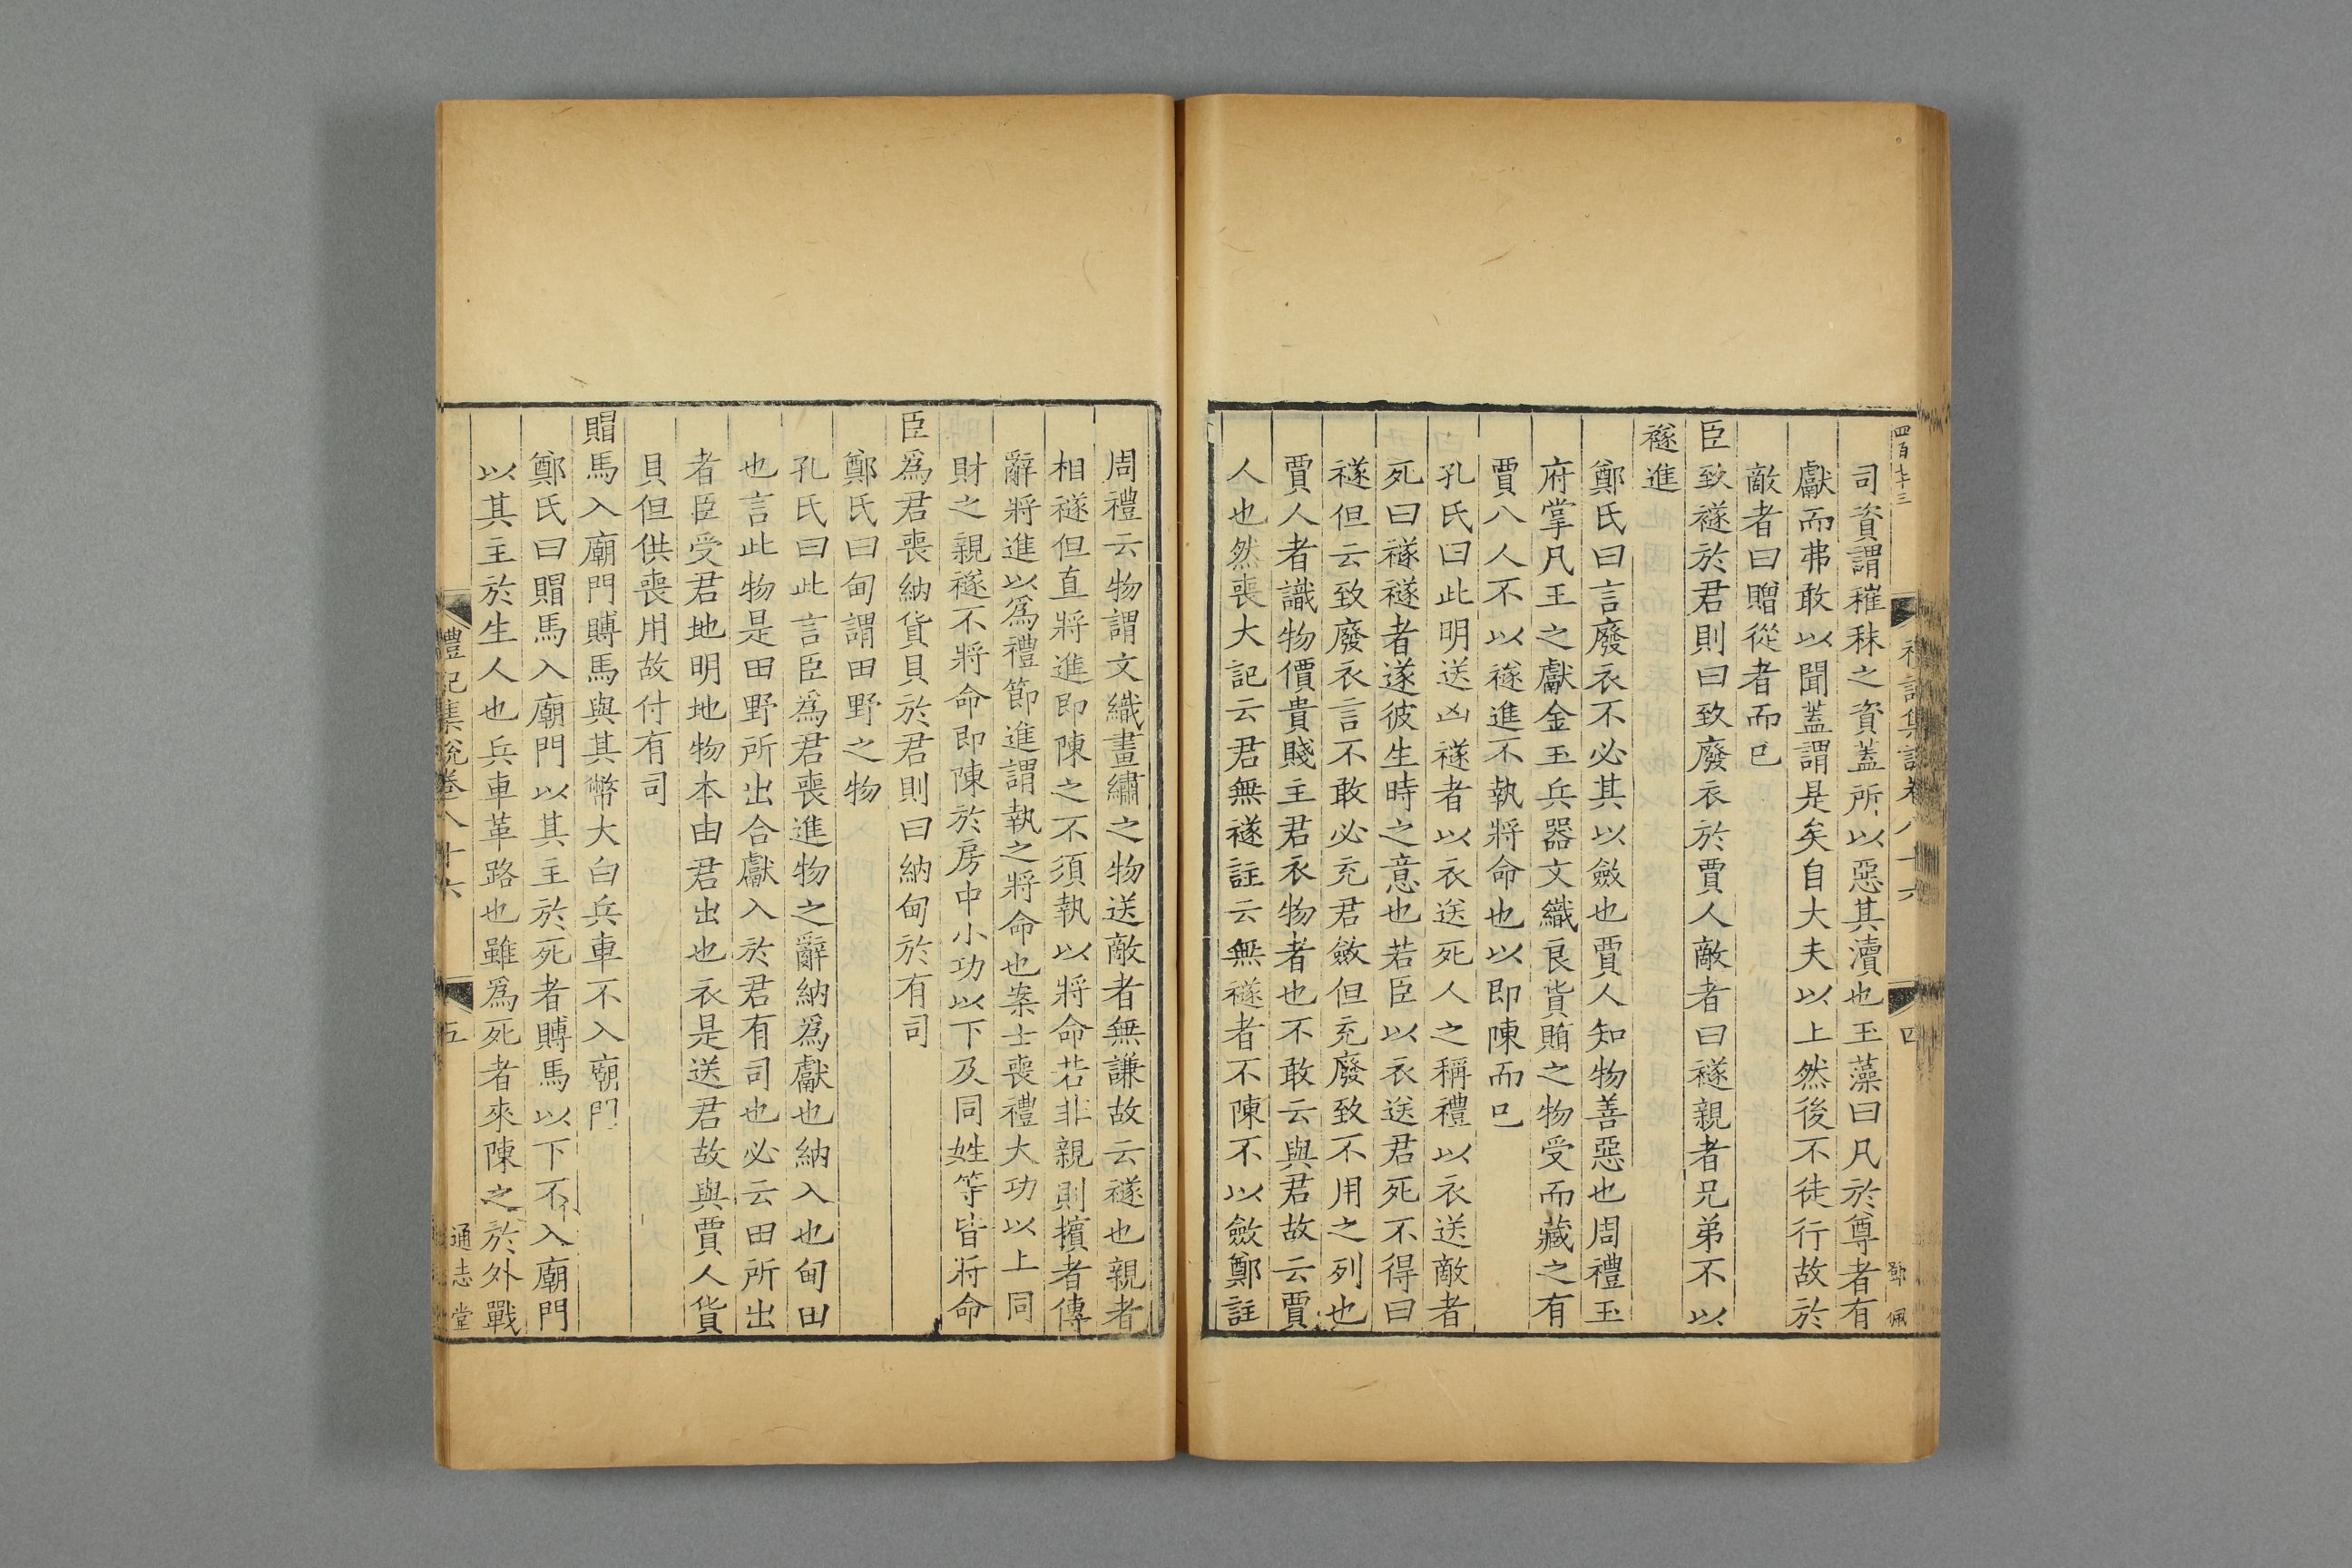 四百七十三
禮記集說卷八十六
四
鄧佩
司資謂稚秣之資蓋所以惡其瀆也玉藻曰凡於尊者有
獻而弗敢以聞蓋謂是矣自大夫以上然後不徒行故於
敵者曰贈從者而已
臣致襚於君則曰致廢衣於賈人敵者曰襚親者兄弟不以
襚進
鄭氏曰言廢衣不必其以斂也賈人知物善惡也周禮玉
府掌凡王之獻金玉兵器文織良貨賄之物受而藏之有
賈八人不以襚進不執將命也以即陳而已
孔氏曰此明送凶襚者以衣送死人之稱禮以衣送敵者
死曰襚襚者遂彼生時之意也若臣以衣送君死不得曰
襚但云致廢衣言不敢必充君斂但充廢致不用之列也
賈人者識物價貴賤主君衣物者也不敢云與君故云賈
人也然喪大記云君無襚註云無襚者不陳不以斂鄭註
周禮云物謂文織畫繡之物送敵者無謙故云襚也親者
相襚但直將進即陳之不須執以將命若非親則擯者傳
辭將進以為禮節進謂執之將命也案士喪禮大功以上同
財之親襚不將命即陳於房中小功以下及同姓等皆將命
臣爲君喪納貨貝於君則曰納甸於有司
鄭氏曰甸謂田野之物
孔氏曰此言臣爲君喪進物之辭納爲獻也納入也甸田
也言此物是田野所出合獻入於君有司也必云田所出
者臣受君地明地物本由君出也衣是送君故與賈人貨
貝但供喪用故付有司
賵馬入廟門賻馬與其幣大白兵車不入廟門
鄭氏曰賵馬入廟門以其主於死者賻馬以下不入廟門
以其主於生人也兵車革路也雖爲死者來陳之於外戰
禮記集說卷八十六
五
通志堂